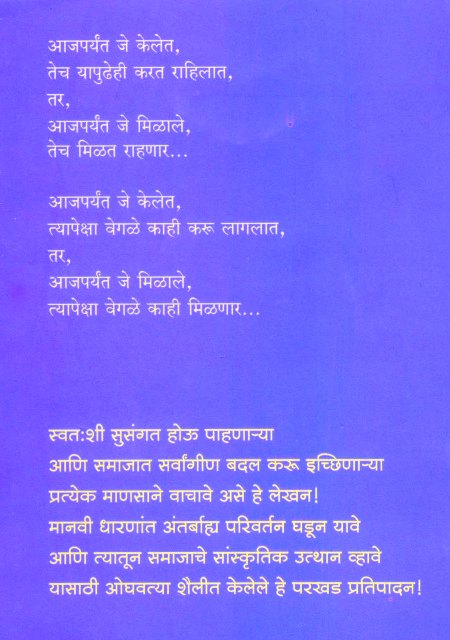 आजपर्यंत जे केलेत,
तेच यापुढेही करत राहिलात,
तर,
आजपर्यंत जे मिळाले,
तेच मिळत राहणार...
आजपर्यंत जे केलेत,
त्यापेक्षा वेगळे काही करू लागलात,
तर,
आजपर्यंत जे मिळाले,
त्यापेक्षा वेगळे काही मिळणार...
स्वतःशी सुसंगत होऊ पाहणाऱ्या
आणि समाजात सर्वांगीण बदल करू इच्छिणाऱ्या
प्रत्येक माणसाने वाचावे असे हे लेखन!
मानवी धारणांत अंतर्बाह्य परिवर्तन घडून यावे
आणि त्यातून समाजाचे सांस्कृतिक उत्थान व्हावे
यासाठी ओघवत्या शैलीत केलेले हे परखड प्रतिपादन!